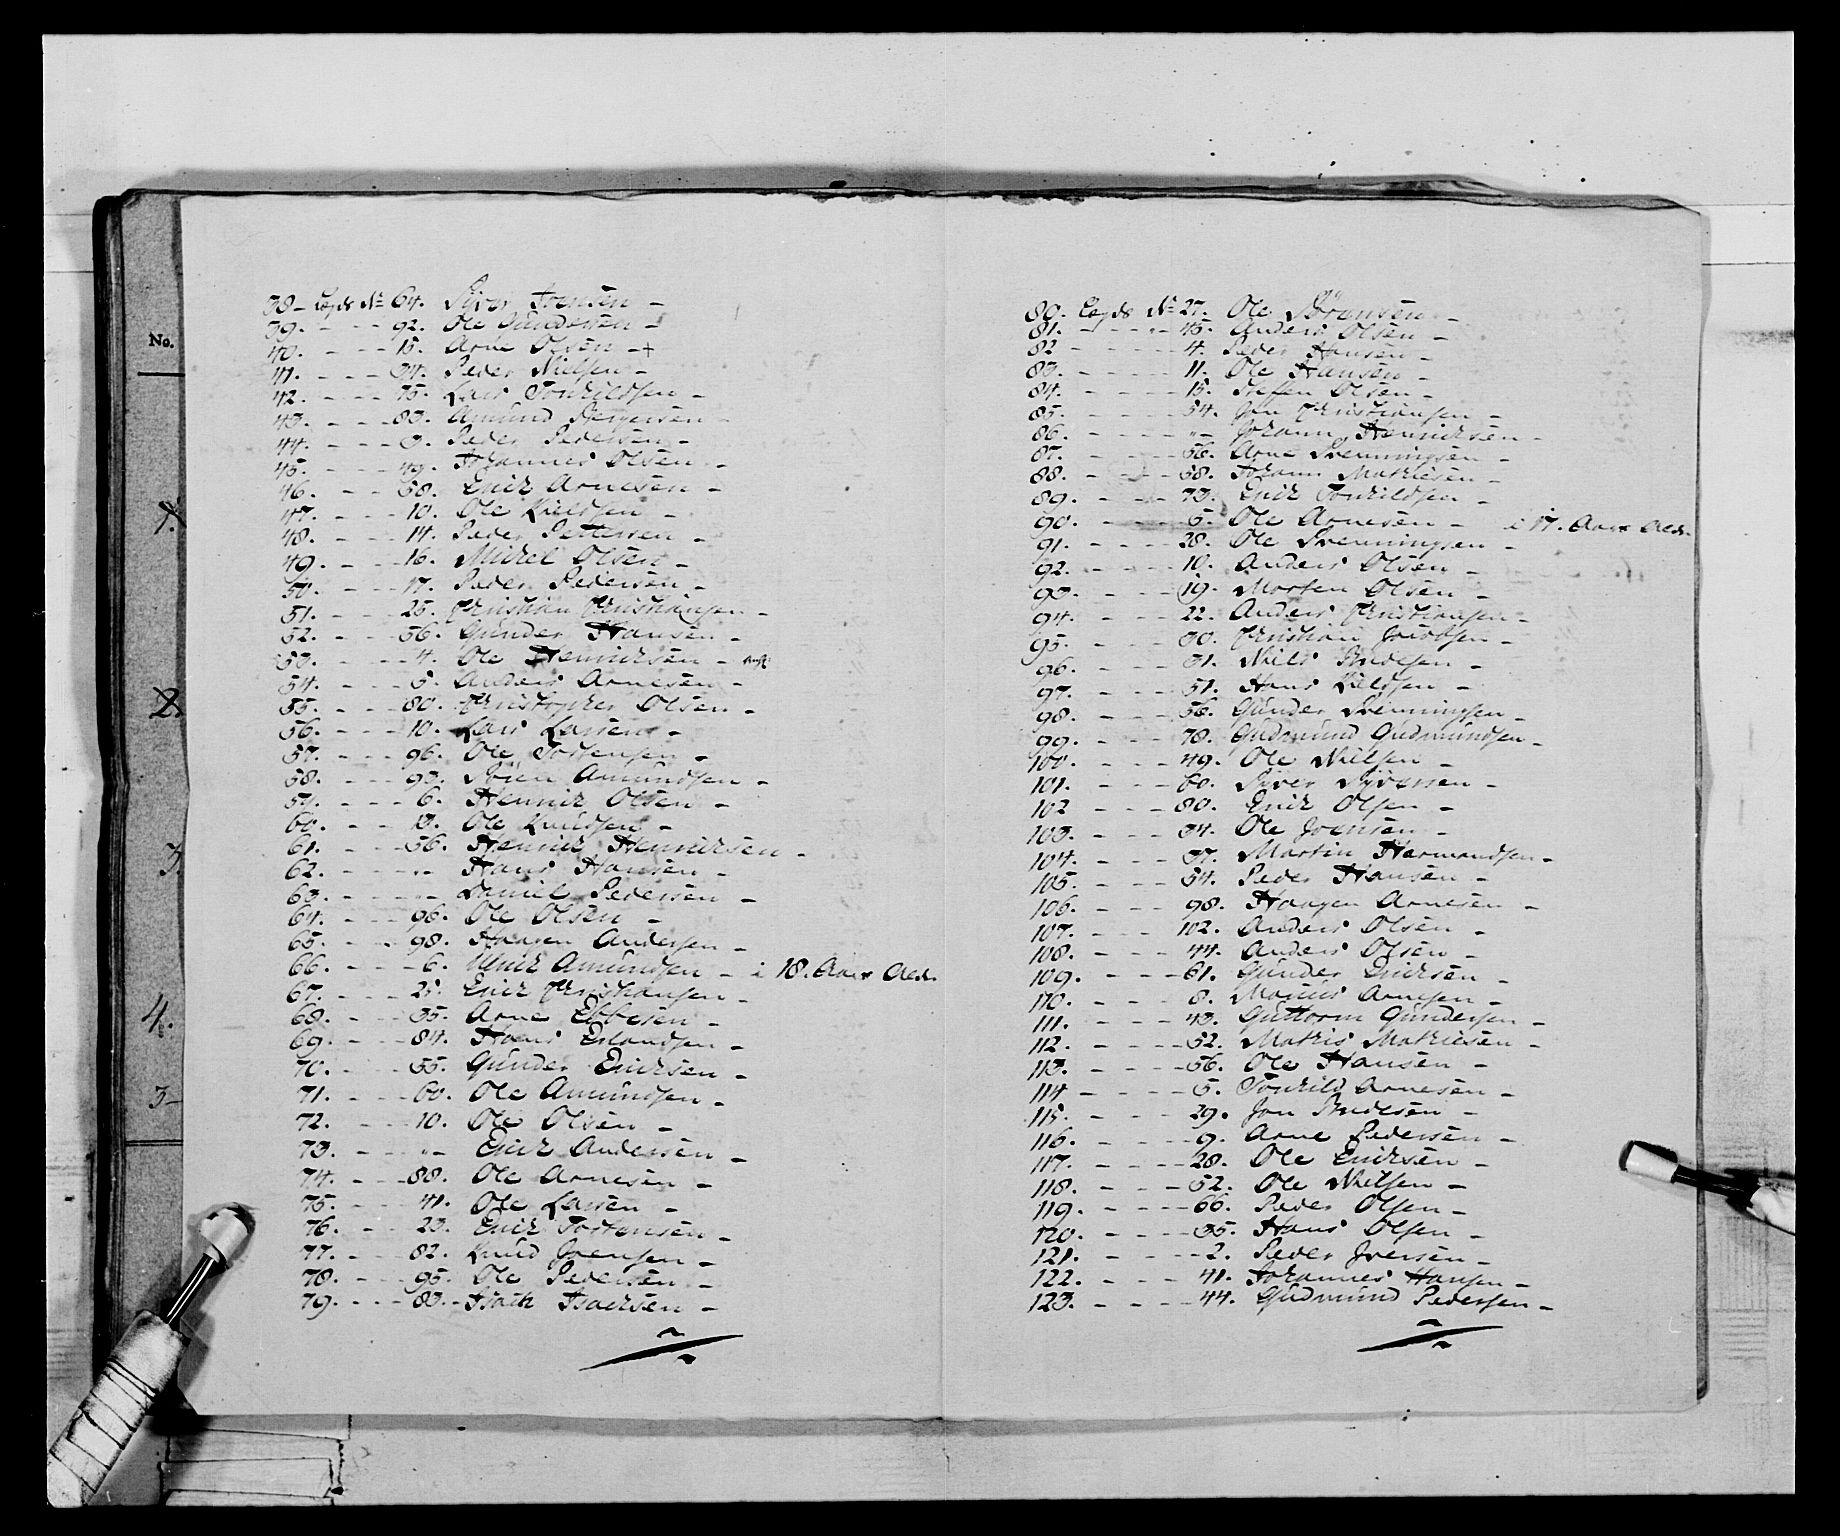 No.
1.
2.
3.
4.
3-
38 - Lægds No 64. Syver Joensen -
39. - - - 92. Ole Gundersen -
40. - - - 15. Arne Olsen - +
41. - - - 34. Peder Nielsen -
42. - - - 75. Lars Tonrildsen -
43. - - - 83. Amund -
44. - - - 3. Peder Pedersen -
45. - - - 49. Johannes Olsen -
46. - - - 58. Erich Arnesen -
47. - - - 10. Ole Kieldsen -
48. - - - 14. Peder Pettersen -
49. - - - 16. Michel Olsen -
50. - - - 17. Peder Pedersen -
51. - - - 25. Christian Christiansen -
52. - - - 56. Gunder Hansen -
53. - - - 4. Ole Henrichsen -
54. - - - 5. Anders Arnesen -
55. - - - 80. Christopher Olsen -
56. - - - 10. Lars Larsen -
57. - - - 96. Ole Torstensen -
58. - - - 93. Sören Amundsen -
59. - - - 6. Henrich Olsen -
60. - - - 13. Ole Knudsen -
61. - - - 56. Henrich Henrichsen -
62. - - - „ - Hans Hansen -
63. - - - „ - Daniel Pedersen -
64. - - - 96. Ole Olsen -
65. - - - 98. Haagen Andersen -
66. - - - 6. Ulrich Amundsen - i 18. Aars Ald.
67. - - - 25. Erich Christiansen -
68. - - - 35. Arne Ebbesen -
69. - - - 84. Hans Erlandsen -
70. - - - 55. Gunder Erichsen -
71. - - - 60. Ole Amundsen -
72. - - - 10. Ole Olsen -
73. - - - „ - Erich Andersen -
74. - - - 88. Ole Arnesen -
75. - - - 41. Ole Larsen -
76. - - - 23. Erich Torstensen -
77. - - - 82. Knud Joensen -
78. - - - 95. Ole Pedersen -
79. - - - 83. - Isach Isachsen -
80. Lægds No 27. Ole Sörensen -
81. - - - 45. Anders Olsen -
82 - - - 4. Peder Hansen -
83. - - - 11. Ole Hansen -
84. - - - 15. Steffen Olsen -
85. - - - 54. Jon Christiansen -
86. - - - „ - Johann Henrichsen -
87. - - - 56. Arne Svenningsen -
88. - - - 58. Johann Mathiesen -
89. - - - 73. Erich Tonrildsen -
90. - - - 5. Ole Arnesen - i 17. Aars Ald.
91. - - - 28. Ole Svenningsen -
92. - - - 10. Anders Olsen -
93. - - - 19. Morten Olsen -
94. - - - 22. Anders Christiansen -
95. - - - 30. Christian Jacobsen -
96. - - - 31. Niels -
97. - - - 51. Hans Kieldsen -
98. - - - 56. Gunder Svenningsen -
99. - - - 78. Gudmund Gudmundsen -
100. - - - 49. Ole Nielsen -
101. - - - 60. Syver Syversen -
102 - - - 80. Erich Olsen -
103. - - - 34. Ole Joensen -
104. - - - 37. Martin Harmandsen -
105. - - - 54. Peder Hansen -
106. - - - 98. Haagen Arnesen -
107. - - - 102. Anders Olsen -
108. - - - 44. Anders Olsen -
109. - - - 61. Gunder Erichsen -
110. - - - 8. Marius Arnesen -
111. - - - 43. Guttorm Gundersen -
112. - - - 52. Mathis Mathiesen -
113. - - - 56. Ole Hansen -
114 - - - 5. Tonrild Arnesen -
115. - - - 29. Jon -
116. - - - 9. Arne Pedersen -
117. - - - 28. Ole Erichsen -
118. - - - 52. Ole Nielsen -
119. - - - 66. Peder Olsen -
120. - - - 35. Hans Olsen -
121. - - - 2. Peder Iversen -
122. - - - 41. Johannes Hansen -
123. - - - 44. Gudmund Pedersen -